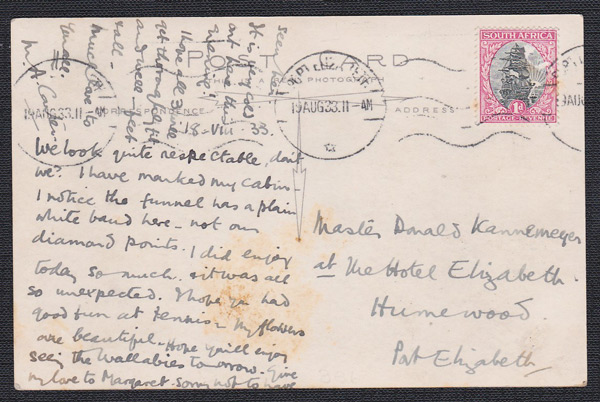 POST CARD
PHOTOGRAPH
CORRESPONDENCE
ADDRESS
SOUTH AFRICA
1D
POSTAGE · REVENUE
19 AUG 33. 11 - AM
19 AUG 33. 11 - AM
19 AUG
18 - VIII - 33.
We look quite respectable, don't
we? I have marked my cabin
I notice the funnel has a plain
white band here - not our
diamond points. I did enjoy
today so much. & it was all
so unexpected. I hope you had
good fun at tennis - My flowers
are beautiful - Hope you'll enjoy
seeing the Wallabies tomorrow. Give
my love to Margaret. Sorry not to have
seen her.
It is very cold
out here this
I have all 3
and well - feet
& all -
Much love to
you all.
Master Donald Kannemeyer
at the Hotel Elizabeth.
Humewood.
Port Elizabeth